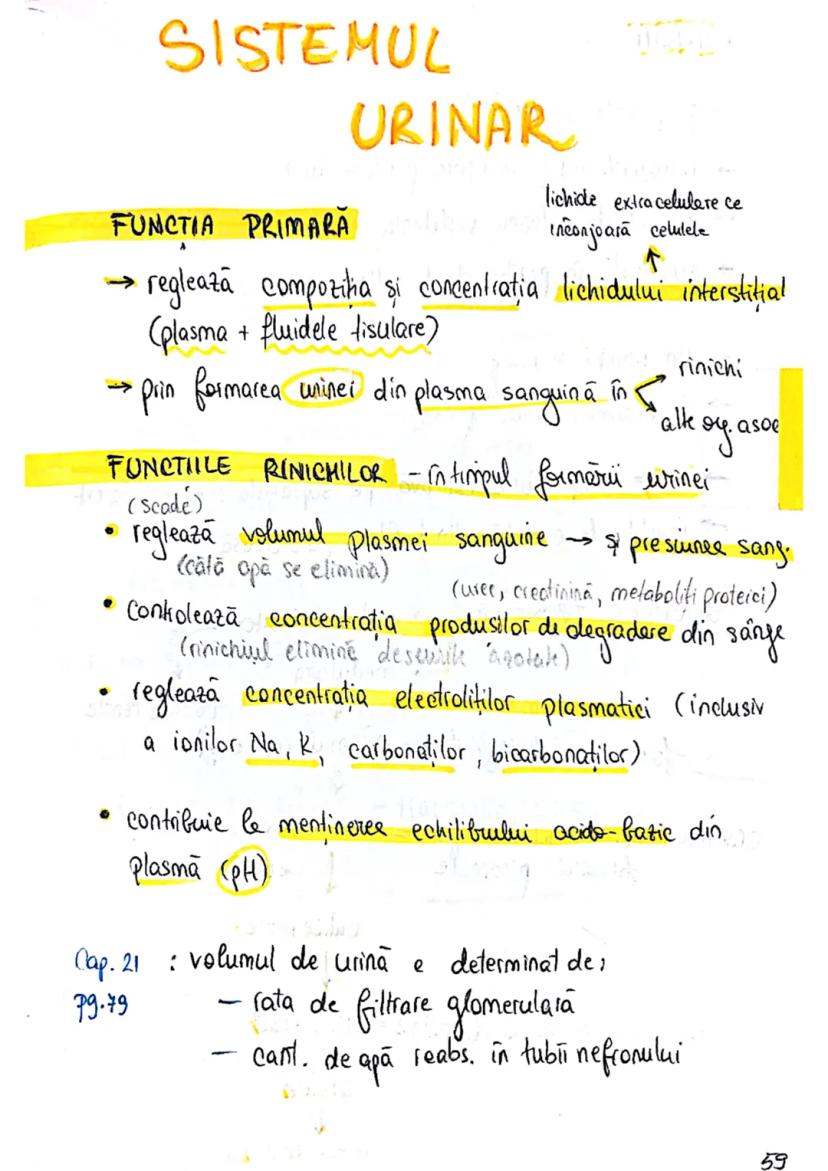 SISTEMUL
URINAR
lichide extracelulare ce
înconjoară celulele
FUNCȚIA PRIMARĂ
→ reglează compoziția și concentrația lichidului interstițial
(plasma + fluidele tisulare)
→ prin formarea urinei din plasma sanguină în
rinichi
alte org. asoc
FUNCȚIILE RINICHILOR - în timpul formării urinei
(scade)
• reglează volumul plasmei sanguine → și presiunea sang.
(câtă apă se elimină)
(uree, creatinină, metaboliți proteici)
• controlează concentrația produsilor de degradare din sânge
(rinichiul elimină deseurile azotate)
• reglează concentrația electroliților plasmatici (inclusiv
a ionilor Na, K, carbonaților, bicarbonaților)
• contribuie la menținerea echilibrului acido-bazic din
plasmă (pH)
Cap. 21 : volumul de urină e determinat de:
pg.79 - rata de filtrare glomerulară
- cant. de apă reabs. în tubii nefronului
59